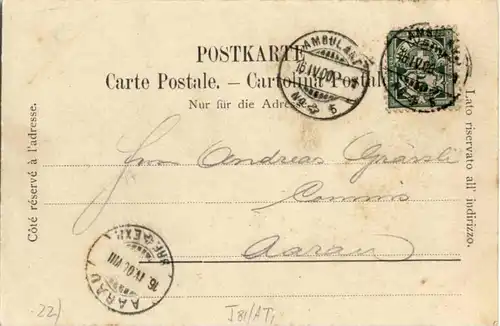 POSTKARTE
Carte Postale. — Cartolina Postale
Nur für die Adresse
Côté réservé à l'adresse.
Lato riservato all' indirizzo.
AMBULANT
16 IV.00
No 22
AMBULANT
Herrn Andreas Grässli
Commis
Aarau
AARAU
BRF. EXP.
16. IV. 00 VIII
22/